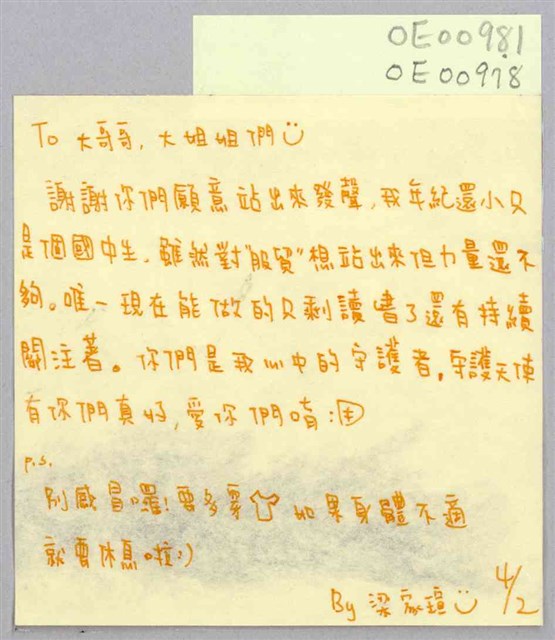 OE00981
OE00978
To 大哥哥, 大姐姐們
謝謝你們願意站出來發聲, 我年紀還小只
是個國中生, 雖然對"服貿"想站出來但力量還不
夠。唯一現在能做的只剩讀書了還有持續
關注著。你們是我心中的守護者, 守護天使
有你們真好, 愛你們唷
p.s.
別感冒囉! 要多穿 如果身體不適
就要休息啦:)
By 梁家瑄
4/2